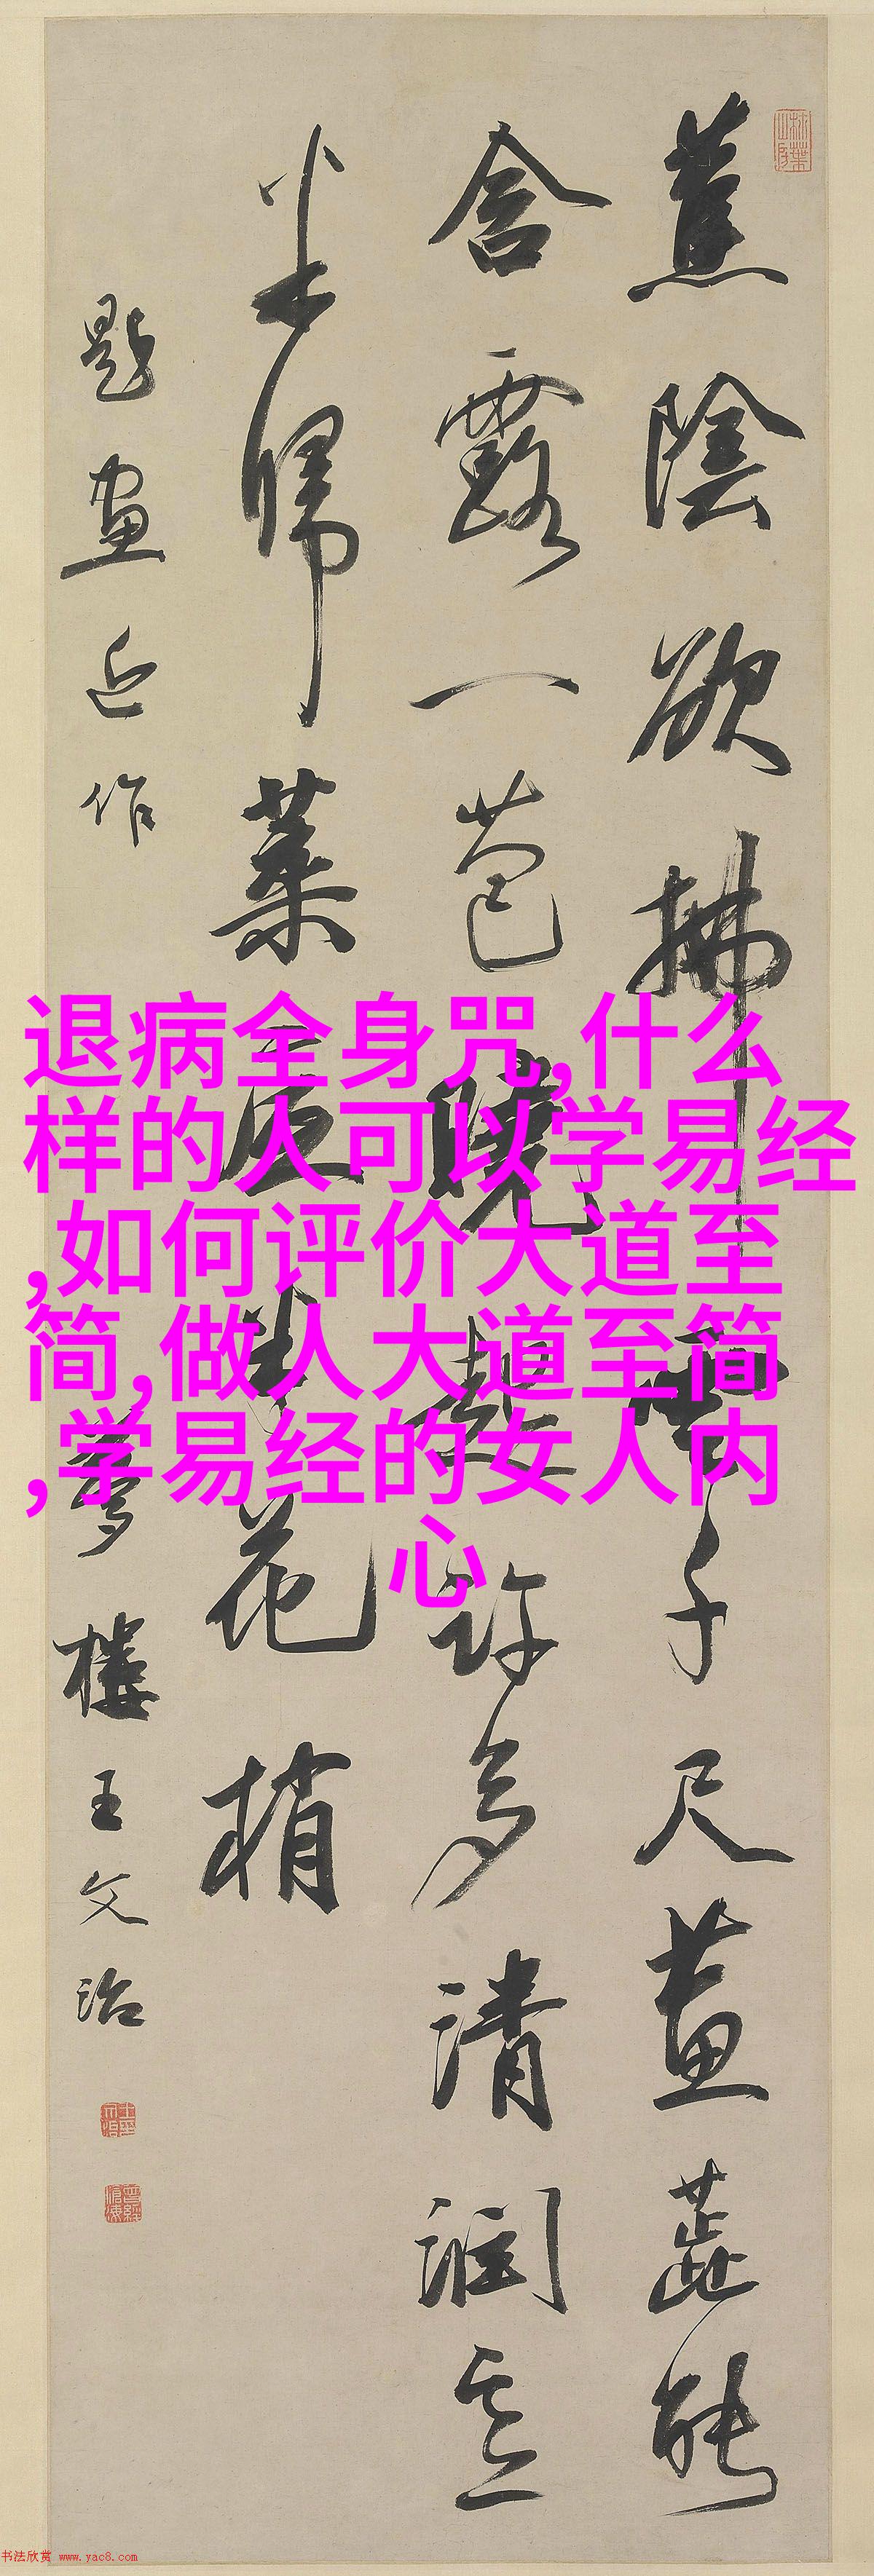 蕉陰欲拂雲千尺畫蕋能
含露一苞曉起許多清潤意
半歸葉底半花梢
題畫近作 夢樓王文治
退病全身咒,什么
样的人可以学易经
,如何评价大道至
简,做人大道至简
,学易经的女人内
心
书法欣赏 www.yac8.com